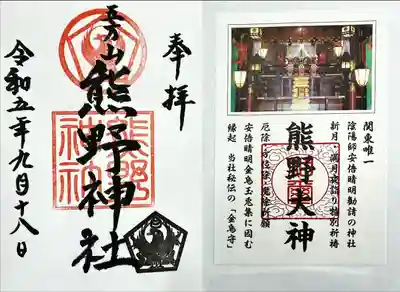 奉拝
五方山
熊野神社
令和五年九月十八日
熊野神社
関東唯一
陰陽師安倍晴明勧請の神社
新月・満月夜詣り特別祈祷
熊野大神
厄除・方位除
安倍晴明金烏玉兎集に因む
縁起 当社秘伝の「金烏守」